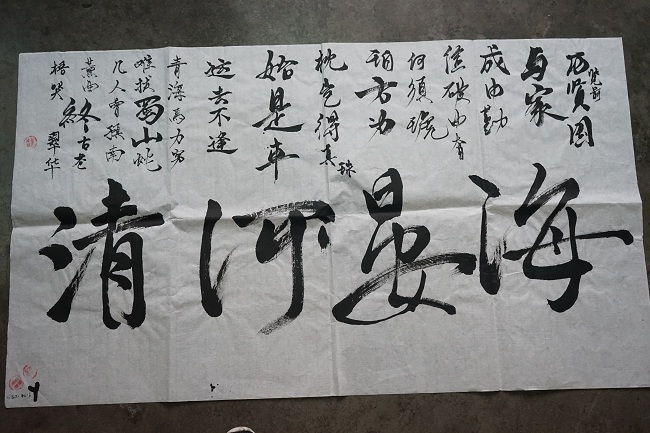 历览前贤国
与家
成由勤
俭破由奢
何须琥
珀方为
枕岂得真珠
始是车
运去不逢
青海马力穷
难拔蜀山蛇
几人曾预南
薰曲
终古苍
梧哭翠华
海晏河清